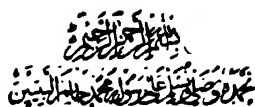 بسم الله الرحمن الرحيم
نحمده ونصلي على رسوله محمد خاتم النبيين